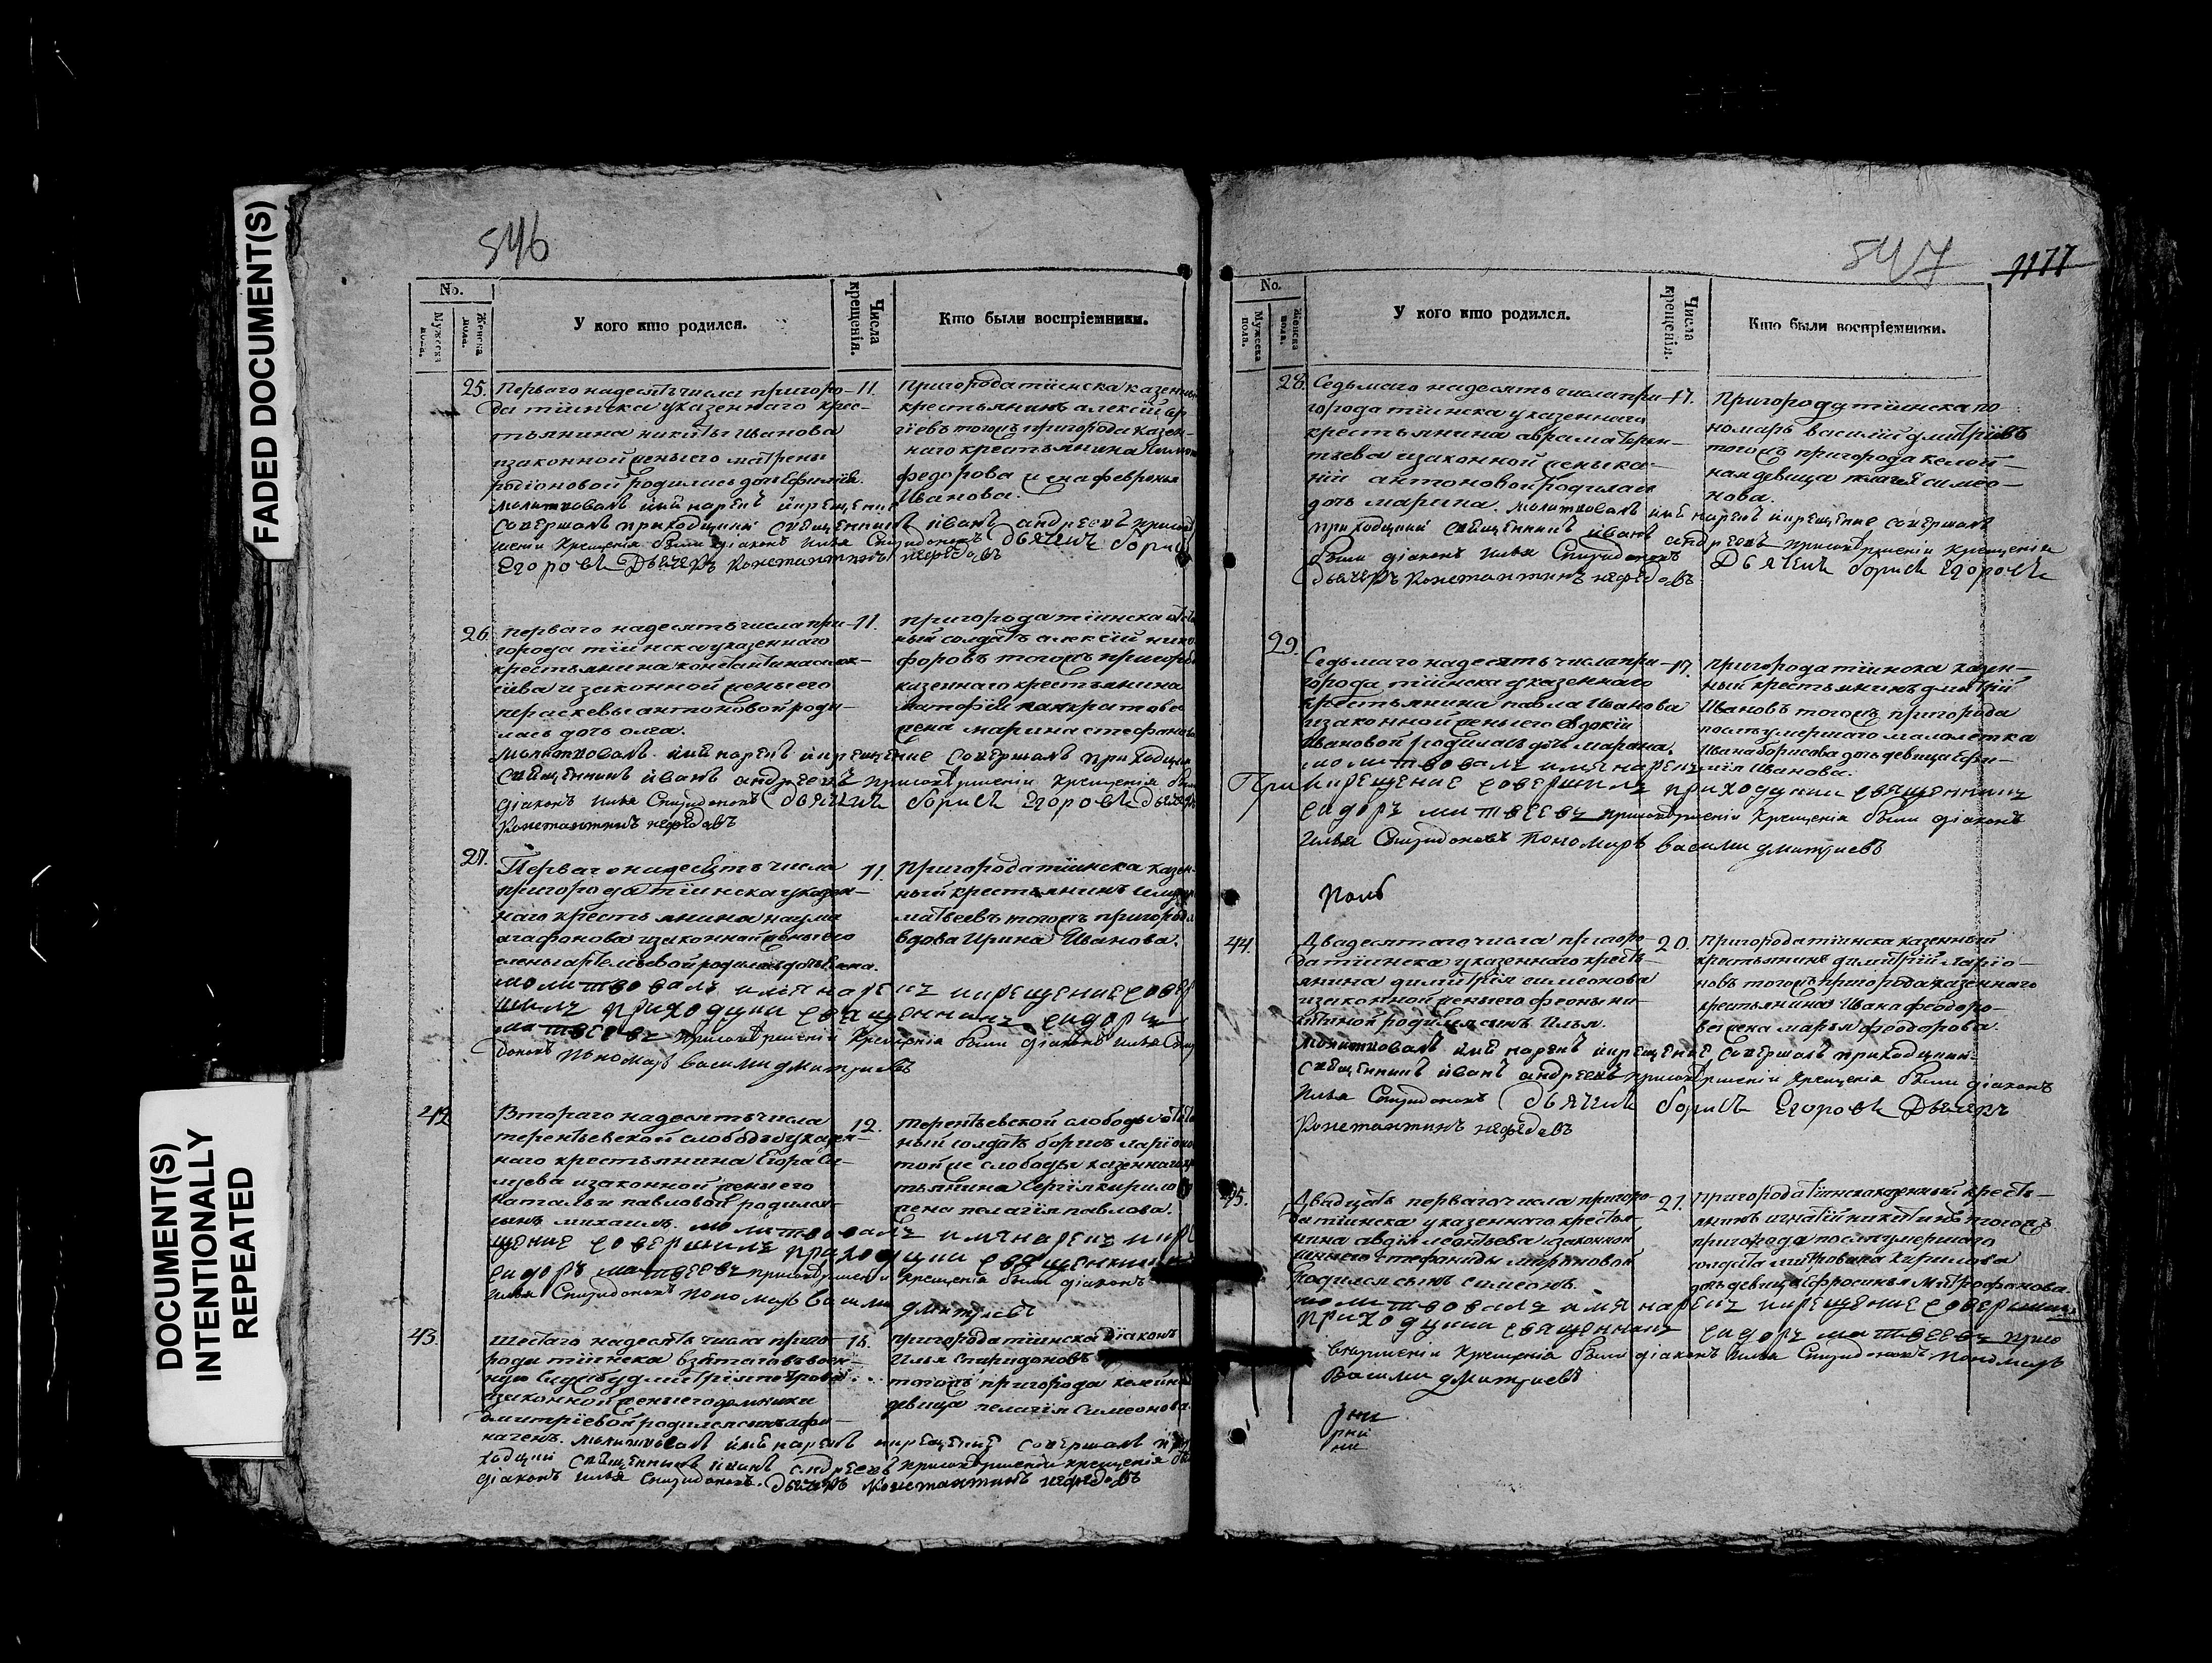 FADED DOCUMENT(S)
DOCUMENT(S)
INTENTIONALLY
REPEATED
546
No.
Мужеска пола.
Женска пола.
У кого кто родился.
Числа крещенія.
Кто были воспріемники.
25.
Перваго надесять числа пригоро-
да тіинска у казеннаго крес-
тьянина никиты Иванова
изаконной жены его матрены
родилась дочь
молитвовалъ имя нарекъ икрещение
совершалъ приходцкий священникъ иванъ андреевъ
крещения были діаконъ илья Спиридоновъ Дьячекъ борисъ
Егоровъ Дьячекъ Константинъ нефедовъ
11.
Пригорода тіинска
крестьянинъ алексій
тогожъ пригорода казен-
наго крестьянина
федорова жена февронья
Иванова.
26.
перваго надесять числа при-
города тіинска у казеннаго
крестьянина константина алек-
сіева изаконной жены его
параскевы антоновой роди-
лась дочь олга.
молитвовалъ имя нарекъ икрещение совершалъ приходцкий
священникъ иванъ андреевъ присовершении крещения были
діаконъ илья Спиридоновъ Дьячекъ борисъ Егоровъ Дьячекъ
Константинъ нефедовъ
11.
пригорода тіинска
ный солдатъ алексій ники-
форовъ тогожъ пригорода
казеннаго крестьянина
панкратова
жена марина стефанова
27.
Перваго надесять числа
пригорода тіинска у казен-
наго крестьянина наума
агафонова изаконной жены его
елены артемьевой родилась дочь
молитвовалъ имя нарекъ икрещение совер
шилъ приходцкии священникъ сидоръ
матвеевъ присовершении крещения были діаконъ илья Спири
доновъ пономарь василии дмитриевъ
11.
Пригорода тіинска казен-
ный крестьянинъ
матвеевъ тогожъ пригорода
вдова Ирина Иванова.
42
Втораго надесять числа
терентьевской слободы у казен-
наго крестьянина Егора
изаконной жены его
натальи павловой родился
сынъ михаилъ. молитвовалъ имя нарекъ икре
щение совершилъ приходцкии священникъ
сидоръ матвеевъ присовершении крещения были діаконъ
илья Спиридоновъ пономарь василии дмитриевъ
12.
терентьевской слободы
ный солдатъ борисъ ларіоновъ
тойже слободы казеннаго
тьянина Сергія кирило
жена пелагія павлова.
43
шестаго надесять числа приго-
рода тіинска взятаго въ воен-
ную службу дмитрія петрова
изаконной жены его домники
дмитріевой родился сынъ афо-
насей. молитвовалъ имя нарекъ икрещение совершалъ при
ходцкий священникъ иванъ андреевъ присовершении крещения были
діаконъ илья Спиридоновъ. Дьячекъ Константинъ нефедовъ
16.
пригорода тіинска діаконъ
Илья Спиридоновъ
тогожъ пригорода келейная
девица пелагія Симеонова
547
1177
No.
Мужеска пола.
Женска пола.
У кого кто родился.
Числа крещенія.
Кто были воспріемники.
28.
Седьмаго надесять числа при-
города тіинска у казеннаго
крестьянина аврама терен-
тьева изаконной жены
антоновой родилась
дочь марина. молитвовалъ имя нарекъ икрещение совершалъ
приходцкий священникъ иванъ андреевъ присовершении крещения
были діаконъ илья Спиридоновъ Дьячекъ борисъ Егоровъ
Дьячекъ Константинъ нефедовъ
17.
Пригорода тіинска по-
номарь василій дмитріевъ
тогожъ пригорода келей-
ная девица пелагея симео-
нова.
29.
Седьмаго надесять числа при-
города тіинска у казеннаго
крестьянина павла Иванова
изаконной жены его евдокіи
Ивановой родилась дочь
молитвовалъ имя нарекъ
При икрещение совершилъ приходцкии священникъ
сидоръ матвеевъ присовершении крещения были діаконъ
илья Спиридоновъ пономарь василии дмитриевъ
17.
пригорода тіинска казен-
ный крестьянинъ дмитрій
Ивановъ тогожъ пригорода
послѣ умершаго малолетка
Ивана борисова дочь девица
Иванова.
44.
Двадесятаго числа пригоро-
да тіинска у казеннаго кресть-
янина димитрія симеонова
изаконной жены его
родился сынъ Илья.
молитвовалъ имя нарекъ икрещение совершалъ приходцкий
священникъ иванъ андреевъ присовершении крещения были діаконъ
илья Спиридоновъ Дьячекъ борисъ Егоровъ Дьячекъ
Константинъ нефедовъ
20.
пригорода тіинска казенный
крестьянинъ димитрій ларіо-
новъ тогожъ пригорода казеннаго
крестьянина Ивана феодоро-
ва жена марья феодорова.
45.
Двадцать перваго числа пригоро-
да тіинска у казеннаго крестья-
нина авдія леонтьева изаконной
жены его стефаниды мироновой
родился сынъ симеонъ.
молитвовалъ имя нарекъ икрещение совершилъ
приходцкии священникъ сидоръ матвеевъ присо
вершении крещения были діаконъ илья Спиридоновъ пономарь
Василии дмитриевъ
21.
пригорода тіинска казенный кресть-
янинъ игнатій никитинъ тогожъ
пригорода послѣ умершаго
солдата митрофана кирилова
дочь девица ефросинья Митрофанова.